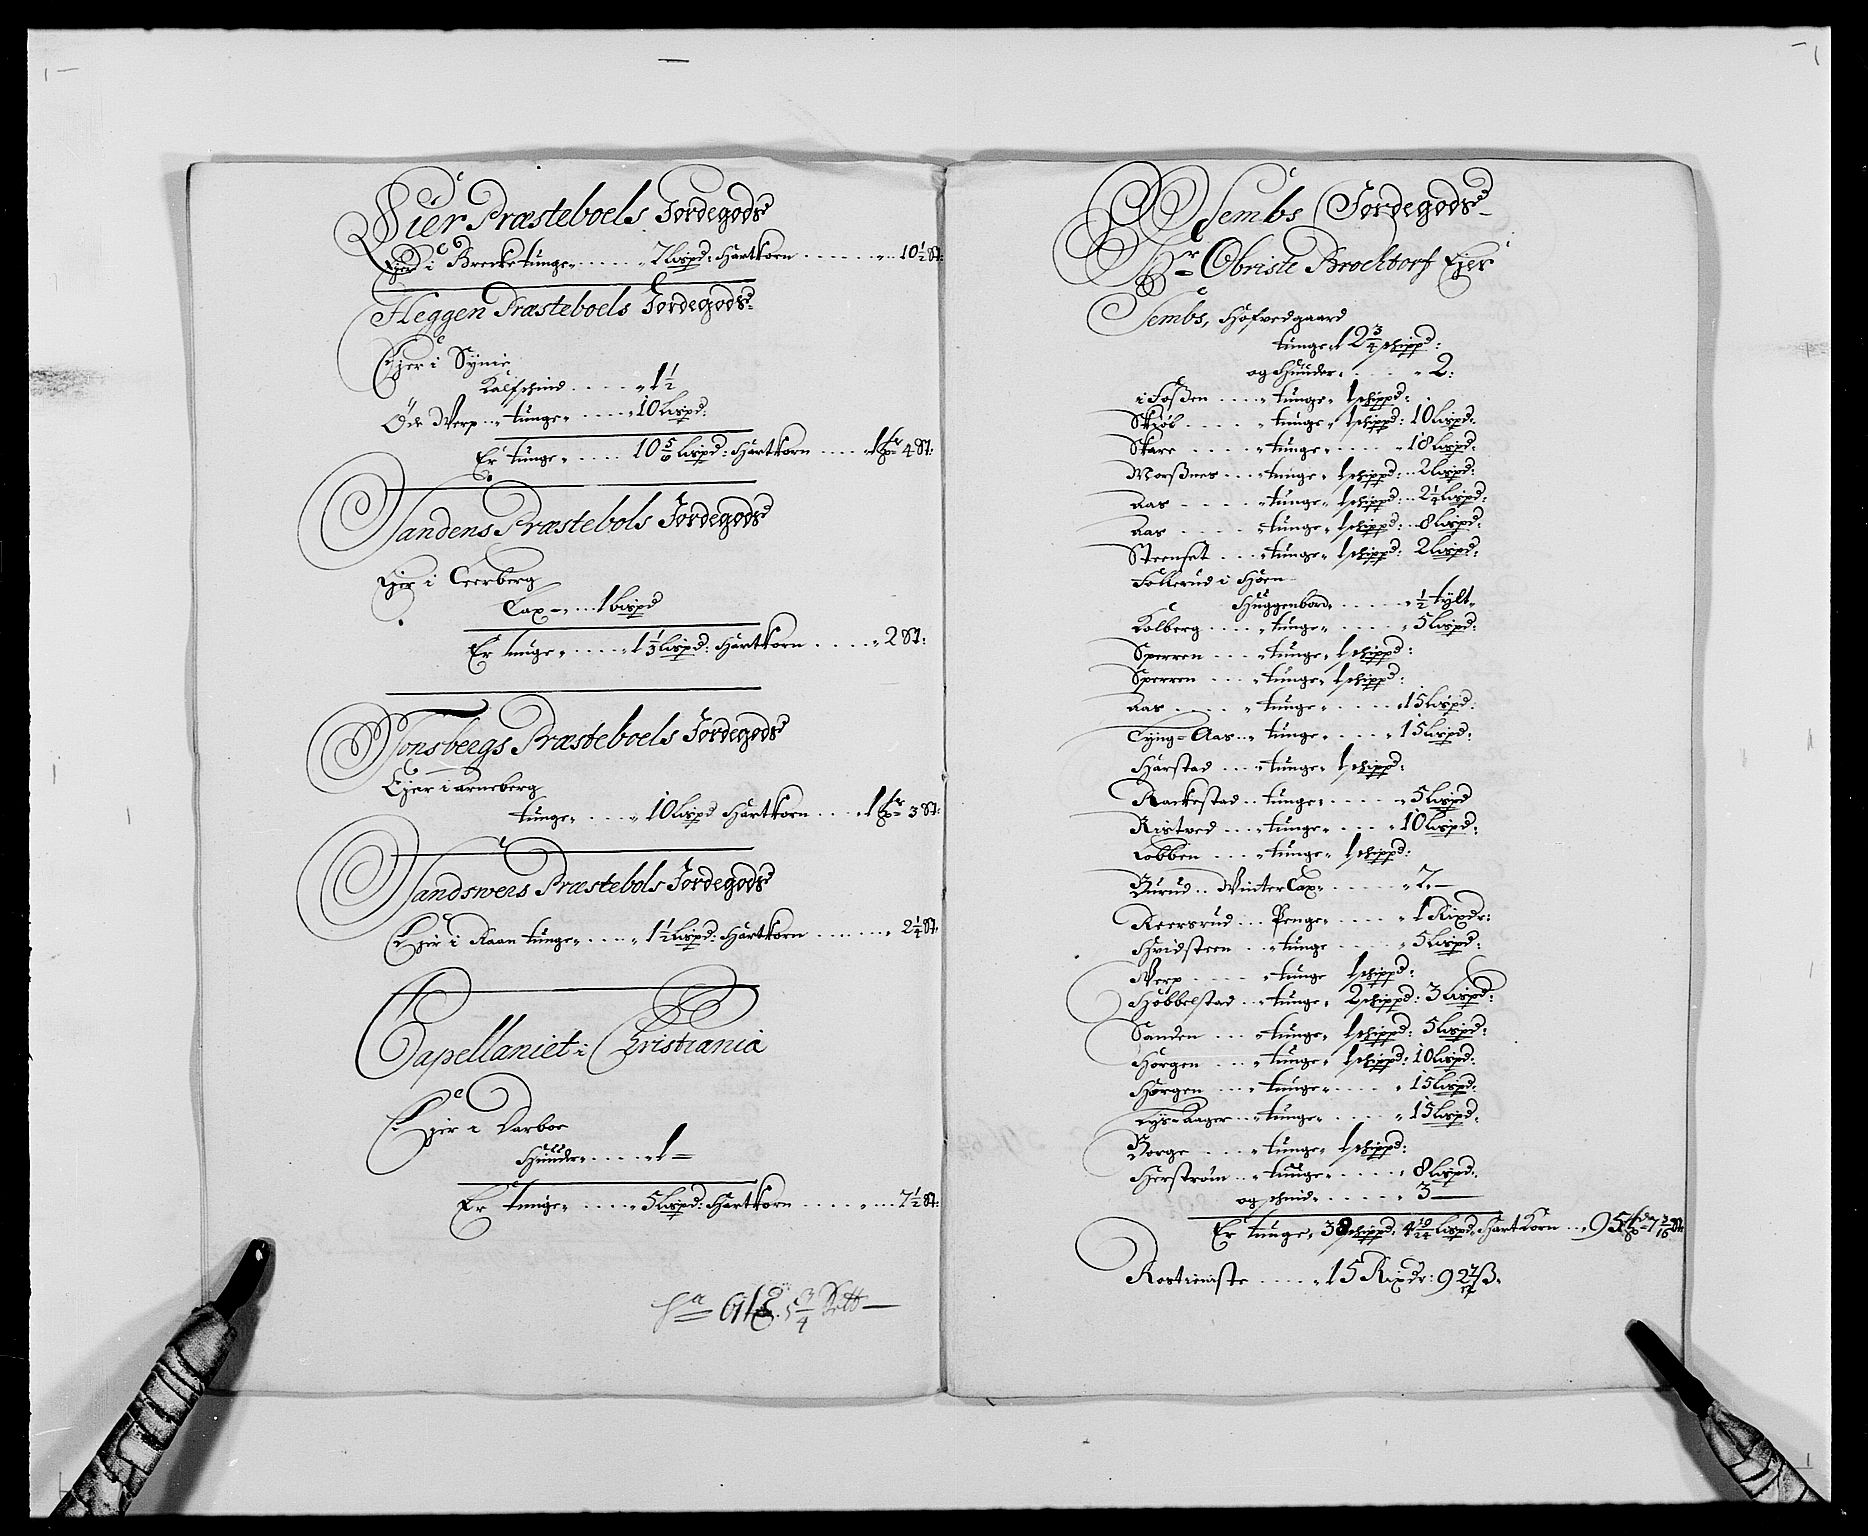 Lier Præsteboels Jordegods
Ejer i Brecke tunge ..... 2 lispd: Hartkorn ....... 10½ St:
Heggen Præsteboels Jordegods
Ejer i Synie,
Kalfschind ..... 1½
Öde Werp .. tunge ..... 10 Lispd:
Er tunge ..... 10 5/6 lispd: Hartkorn ..... 1 4 St:
Sandens Præstebols Jordegods
Ejer i Ceerberg
Lax ... 1 Lispd
Er tunge ..... 1⅓ Lispd: Hartkorn ..... 2 St:
Tonsbergs Præsteboels Jordegods
Ejer i arneberg
tunge ..... 10 Lispd Hartkorn .... 1 3 St:
Sandswers Præstebols Jordegods
Ejer i Kaan tunge ..... 1½ Lispd: Hartkorn ....... 2¼ St:
Capellaniet i Christiania
Ejer i Darboe
Huuder ..... 1 —
Er tunge ..... 5 Lispd: Hartkorn ....... 7½ St:
5¾ Sett —
Sembs Jordegods
Hr Obriste Brocktorf Ejer
Sembs, Hofvedgaard
tunge 12¾ schippd:
og Huuder ..... 2:
i Foßen .... tunge 1 schippd:
Skiöl ..... tunge 1 schippd: 10 Lispd:
Skare ..... tunge ..... 18 Lispd:
Morßnes ... tunge 1 schippd: .. 2 Lispd:
Aas ..... tunge 1 schippd: .. 2¼ Lispd:
Aas ..... tunge 1 schippd: .. 8 Lispd:
Steenset ... tunge 1 schippd: 2 Lispd:
Follerud i Höen
Huggenbord ..... ½ tylt
Kolberg .... tunge ..... 5 Lispd:
Sperren ... tunge 1 schippd:
Sperren ... tunge 1 schippd:
Aas .... tunge ..... 15 Lispd:
Tyng-Aas .. tunge .... 15 Lispd:
Harstad ... tunge 1 schippd:
Rackestad .. tunge ..... 5 Lispd
Ristved ... tunge .... 10 Lispd:
Lobben .... tunge 1 schippd:
Burud .. Winter Lax ..... 2 —
Keersrud ... Penge .... 1 Rixdr:
Hvidsteen .. tunge .... 5 Lispd:
Werp .... tunge 1 schippd:
Hobbelstad .. tunge 2 schippd: 3 Lispd:
Sanden ... tunge 1 schippd: 5 Lispd:
Horgen ... tunge 1 schippd: 10 Lispd:
Horgen ... tunge .... 15 Lispd:
Lys-Aager .. tunge .... 15 Lispd:
Borge .... tunge 1 schippd:
Herström .. tunge ..... 8 Lispd:
og schind ..... 3 —
Er tunge 38 schippd: 4 Lispd: Hart Korn ... 95 7 3/16 St:
Rostieniste ..... 15 Rixdr: 92